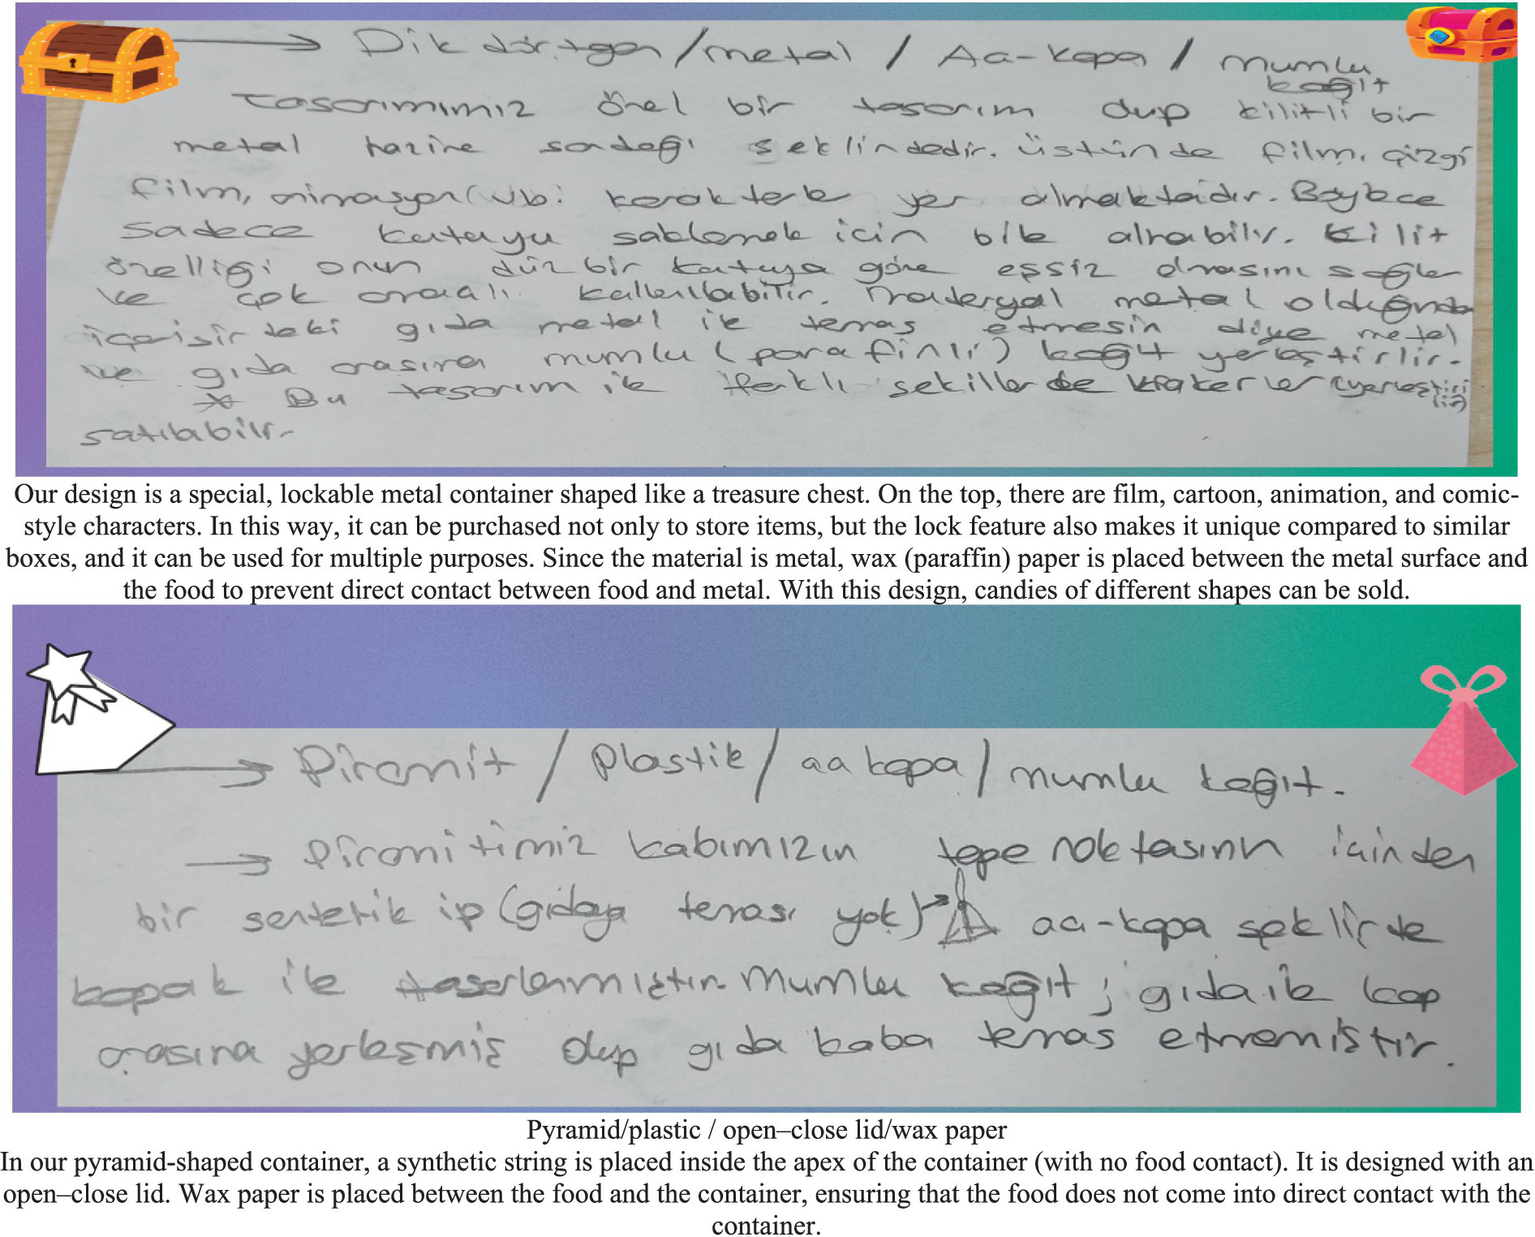 Dikdörtgen / metal / Aa-kapa / mumlu
kağıt
Tasarımımız özel bir tasarım olup kilitli bir
metal hazine sandağı şeklindedir. Üstünde film, çizgi
film, animasyon (vb. karakterle yer almaktadır. Böylece
sadece kutuyu saklamak için bile alınabilir. Kilit
özelliği onun düz bir kutuya göre eşsiz olmasını sağlar
ve çok amaçlı kullanılabilir. Materyal metal olduğundan
içerisindeki gıda metal ile temas etmesin diye metal
ve gıda arasına mumlu (parafinli) kağıt yerleştirilir.
* Bu tasarım ile farklı şekillerde krakerler (yerleştiri
lip)
satılabilir.
Our design is a special, lockable metal container shaped like a treasure chest. On the top, there are film, cartoon, animation, and comic-
style characters. In this way, it can be purchased not only to store items, but the lock feature also makes it unique compared to similar
boxes, and it can be used for multiple purposes. Since the material is metal, wax (paraffin) paper is placed between the metal surface and
the food to prevent direct contact between food and metal. With this design, candies of different shapes can be sold.
Piramit / Plastik / aa kapa / mumlu kağıt.
Piramitimiz kabımızın tepe noktasının içinden
bir sentetik ip (gıdaya teması yok) aa-kapa şeklinde
kapak ile tasarlanmıştır. Mumlu kağıt; gıda ile kap
arasına yerleşmiş olup gıda kaba temas etmemiştir.
Pyramid/plastic / open–close lid/wax paper
In our pyramid-shaped container, a synthetic string is placed inside the apex of the container (with no food contact). It is designed with an
open–close lid. Wax paper is placed between the food and the container, ensuring that the food does not come into direct contact with the
container.